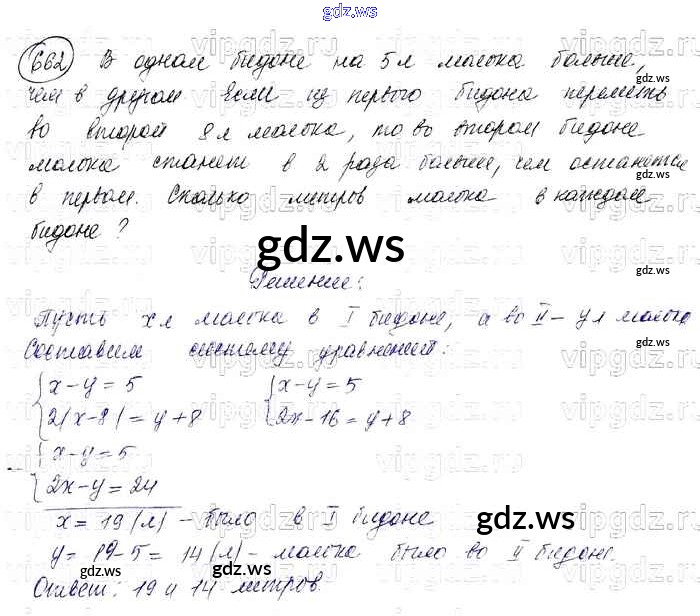 gdz.ws
662 В одном бидоне на 5 л молока больше,
чем в другом Если из первого бидона перелить
во второй 8 л молока, то во втором бидоне
молока станет в 2 раза больше, чем останется
в первом. Сколько литров молока в каждом
бидоне?
gdz.ws
Решение:
Пусть х л молока в I бидоне, а во II – у л молока
Составим систему уравнений:
x - y = 5 x - y = 5
2(x-8) = y+8 2x-16 = y+8
x - y = 5
2x - y = 24
x = 19 (л) – было в I бидоне
y = 19-5 = 14 (л) – молока было во II бидоне.
Ответ: 19 и 14 литров.
gdz.ws